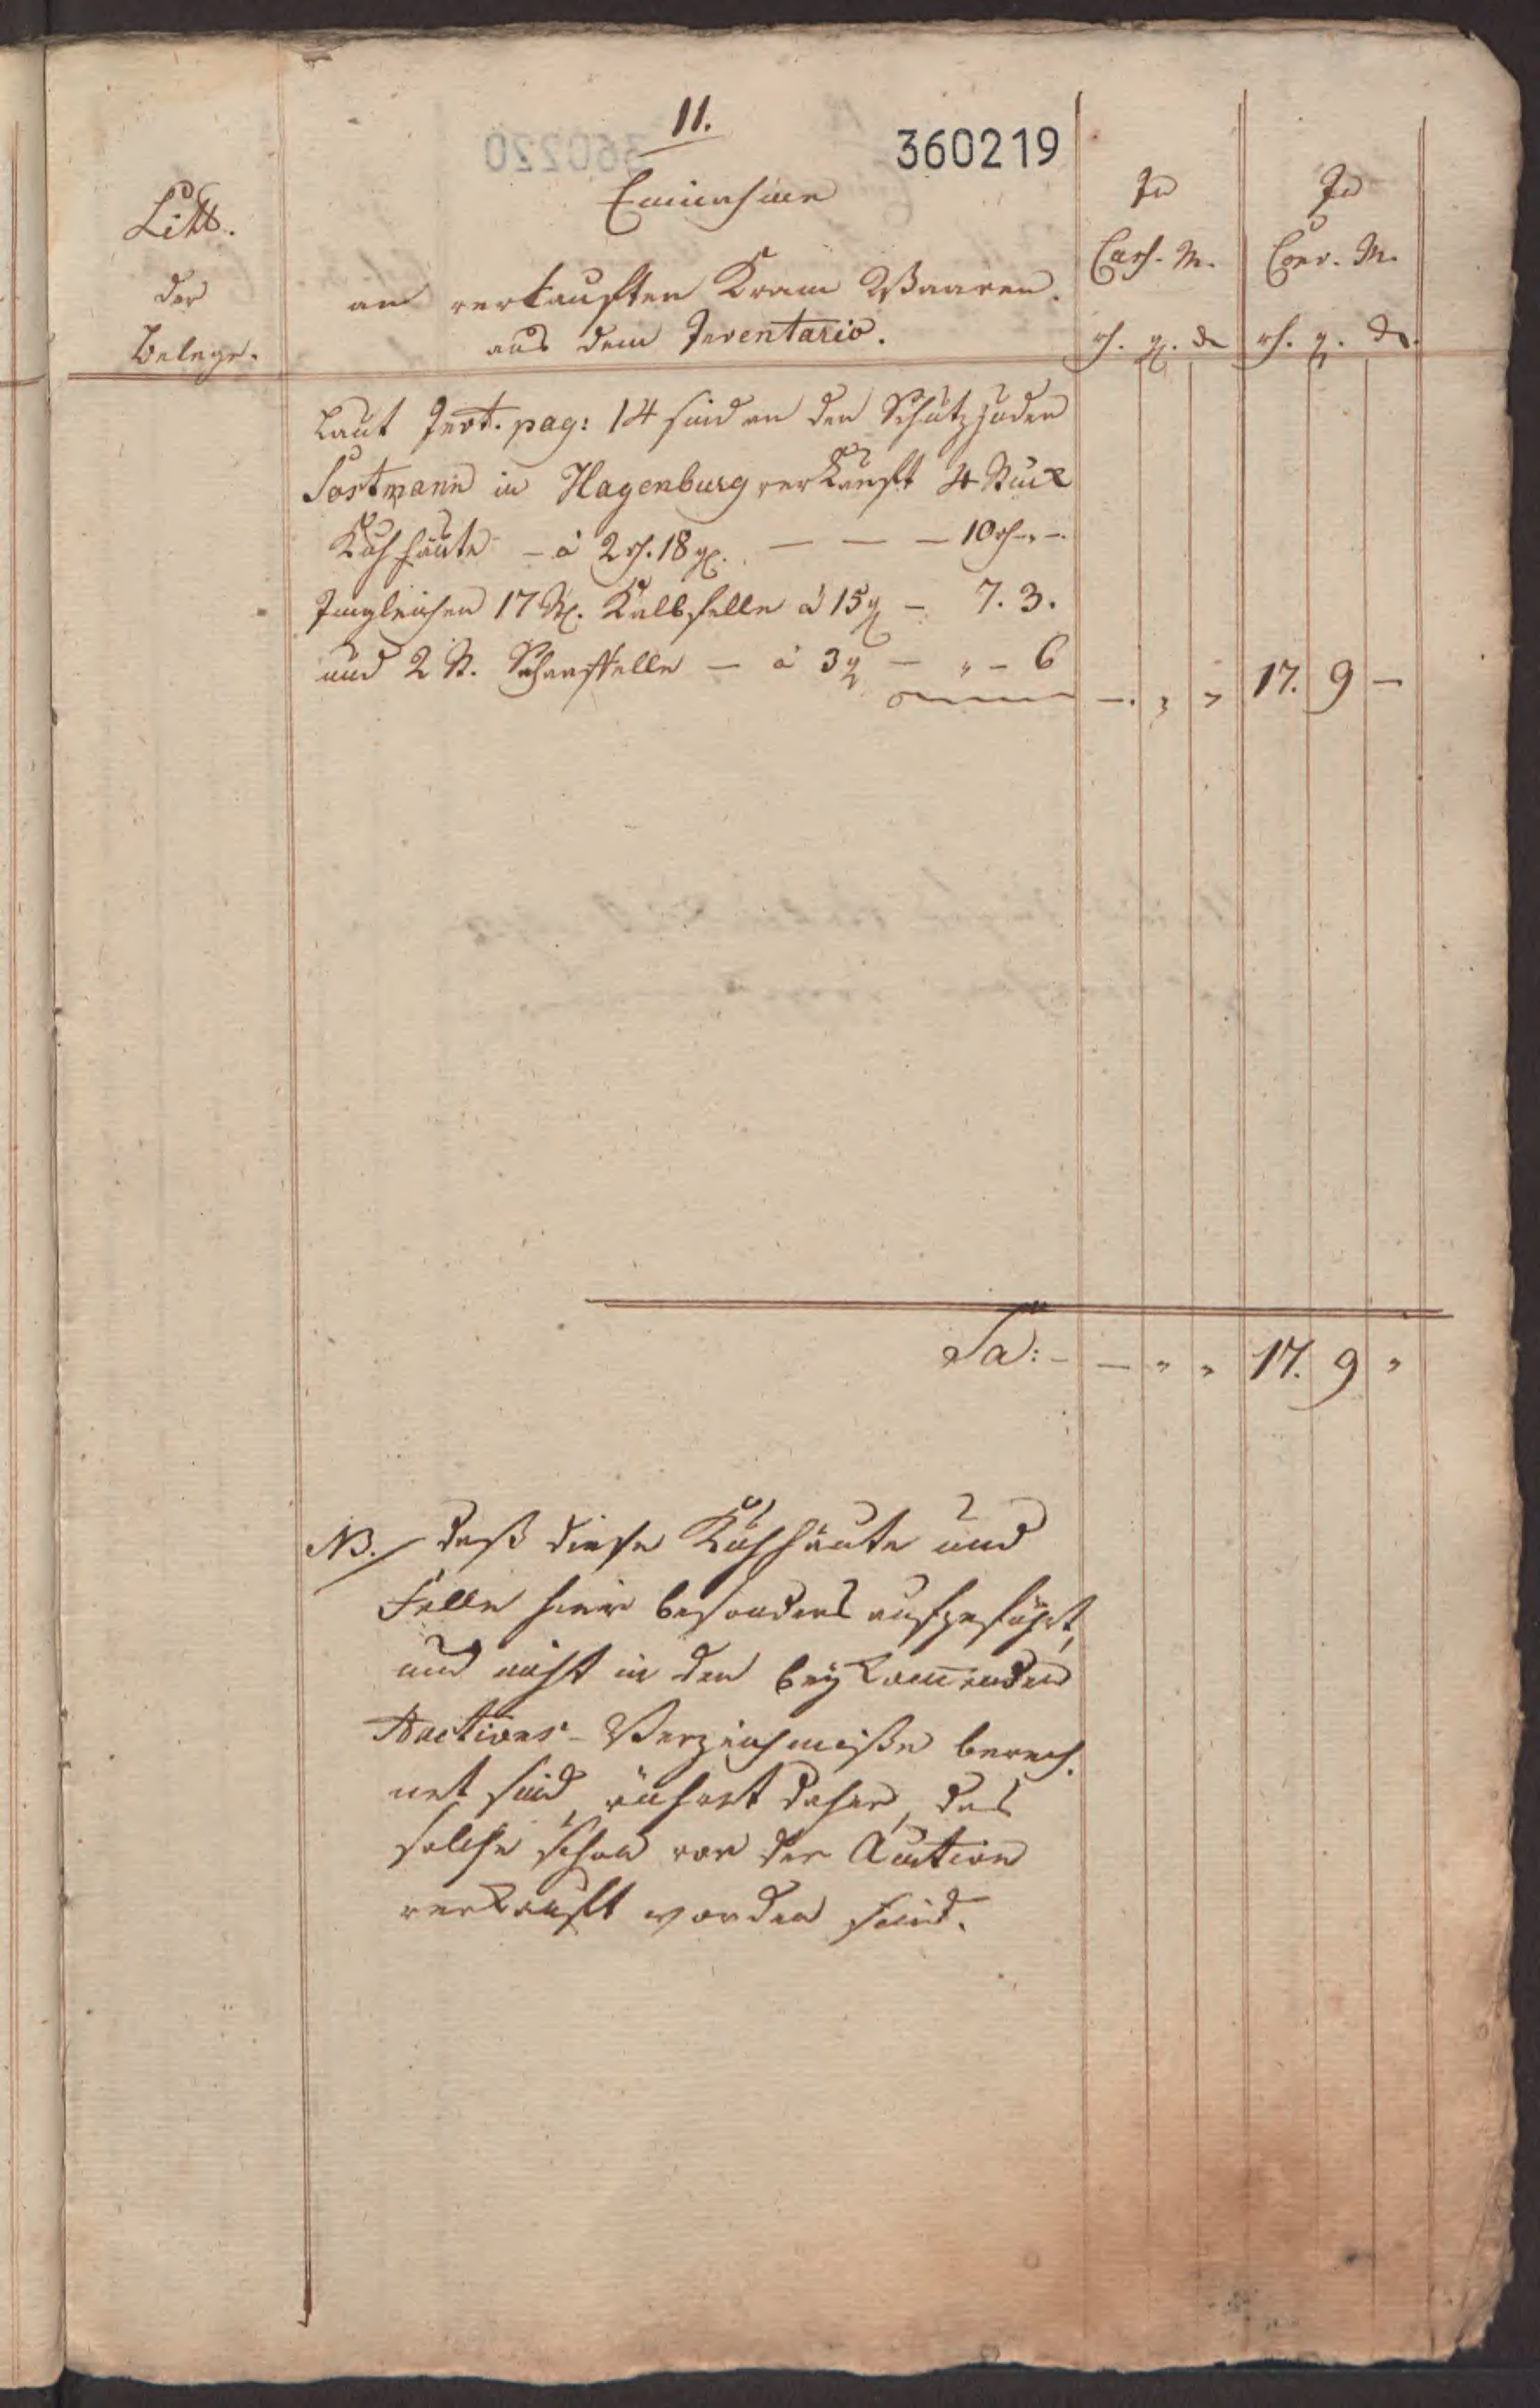 11.
360219
Einnahme
an verkauften Kram Waaren.
aus dem Inventario.
Litt.
der
Belege.
In
Cass. M.
rh. g. d
In
Conv. M.
rh. g. d.
Laut Invt. pag: 14 sind an den Schutzjuden
Sostmann in Hagenburg verkauft 4 Stück
Kuhhäute - à 2 rh. 18 g. — — — 10 rh - „ -
Imgleichen 17 St. Kalbfelle à 15 g — 7. 3.
und 2 St. Schaaffelle — à 3 g — „ - 6
— „ „ 17. 9 —
Sa: — „ „ 17. 9 „
NB. daß diese Kuhhäute und
Felle hier besonders aufgeführt,
und nicht in den beykom̅enden
Auctions-Verzeichniße berech-
net sind, rühret daher, das
solche schon vor der Auction
verkauft worden sind.